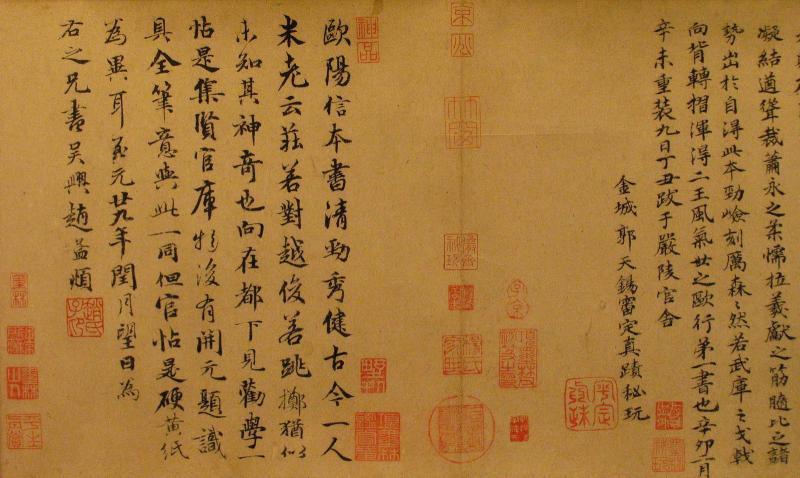 凝結遒聳裁蕭永之柔懦拉羲獻之筋髓比之諸
勢出於自得此本勁嶮刻厲森〻然若武庫之戈戟
向背轉摺渾得二王風氣世之歐行第一書也辛卯一月
辛未重裝九日丁丑跋于嚴陵官舍
金城郭天錫審定真蹟秘玩
神品
歐陽信本書清勁秀健古今一人
米老云莊若對越俊若跳擲猶似
未知其神奇也向在都下見勸學一
帖是集賢官庫物後有開元題識
具全筆意與此一同但官帖是硬黄紙
為異耳至元廿九年閏月望日為
右之兄書吳興趙孟頫
趙氏子昂